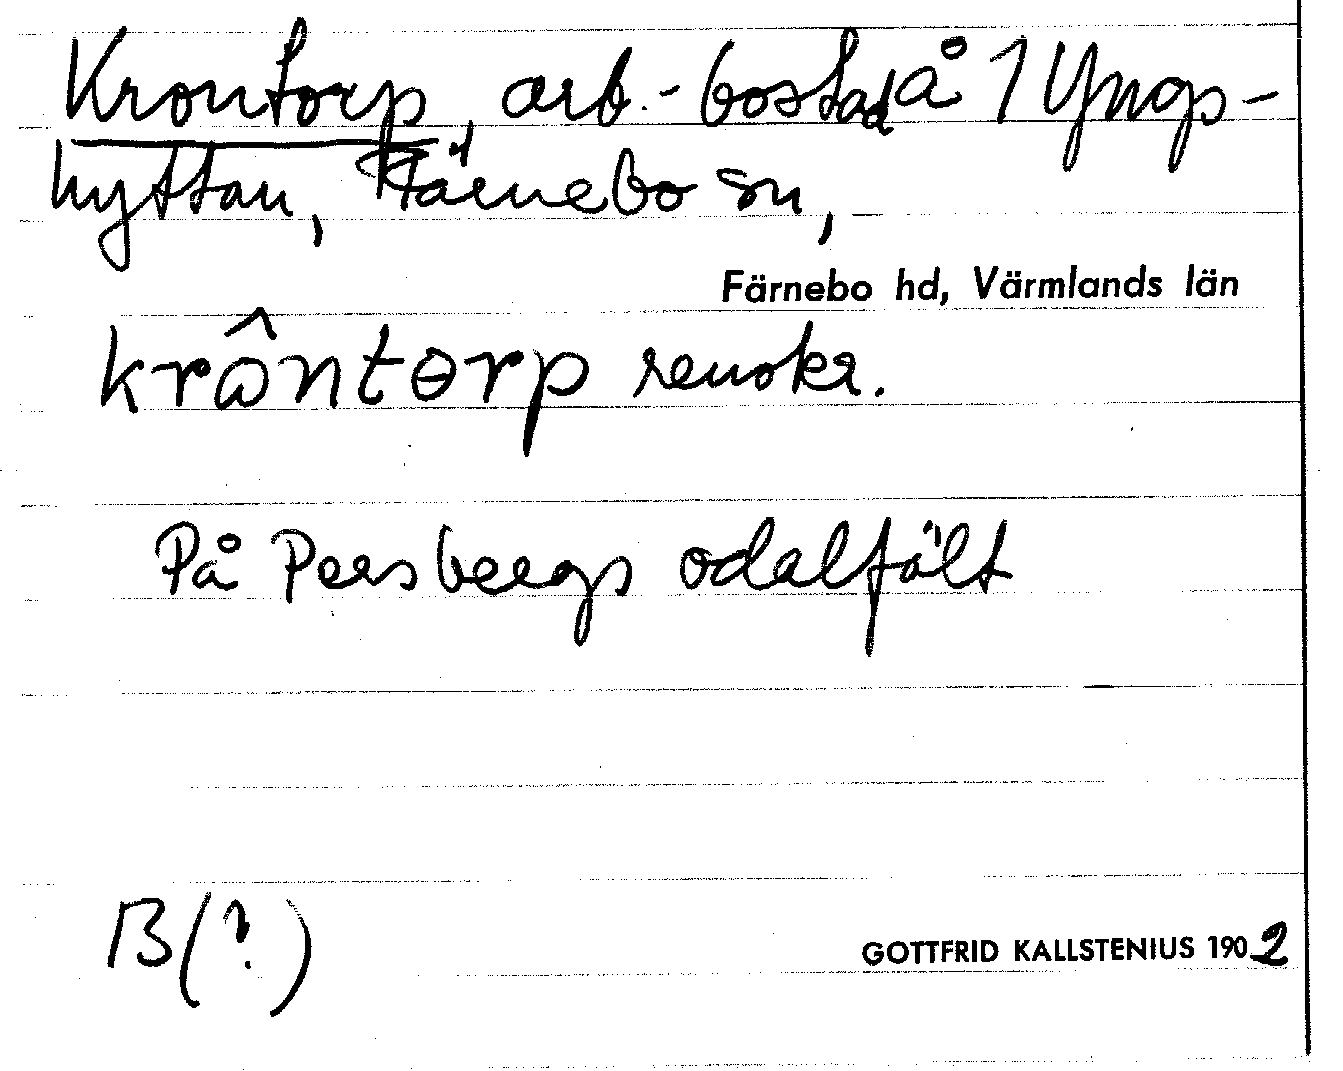 Krontorp, arb.-bostad å 1 Yngs-
hyttan, Färnebo sn,
Färnebo hd, Värmlands län
krôntɵrp renskr.
På Persbergs odalfält
B(?)
GOTTFRID KALLSTENIUS 1902